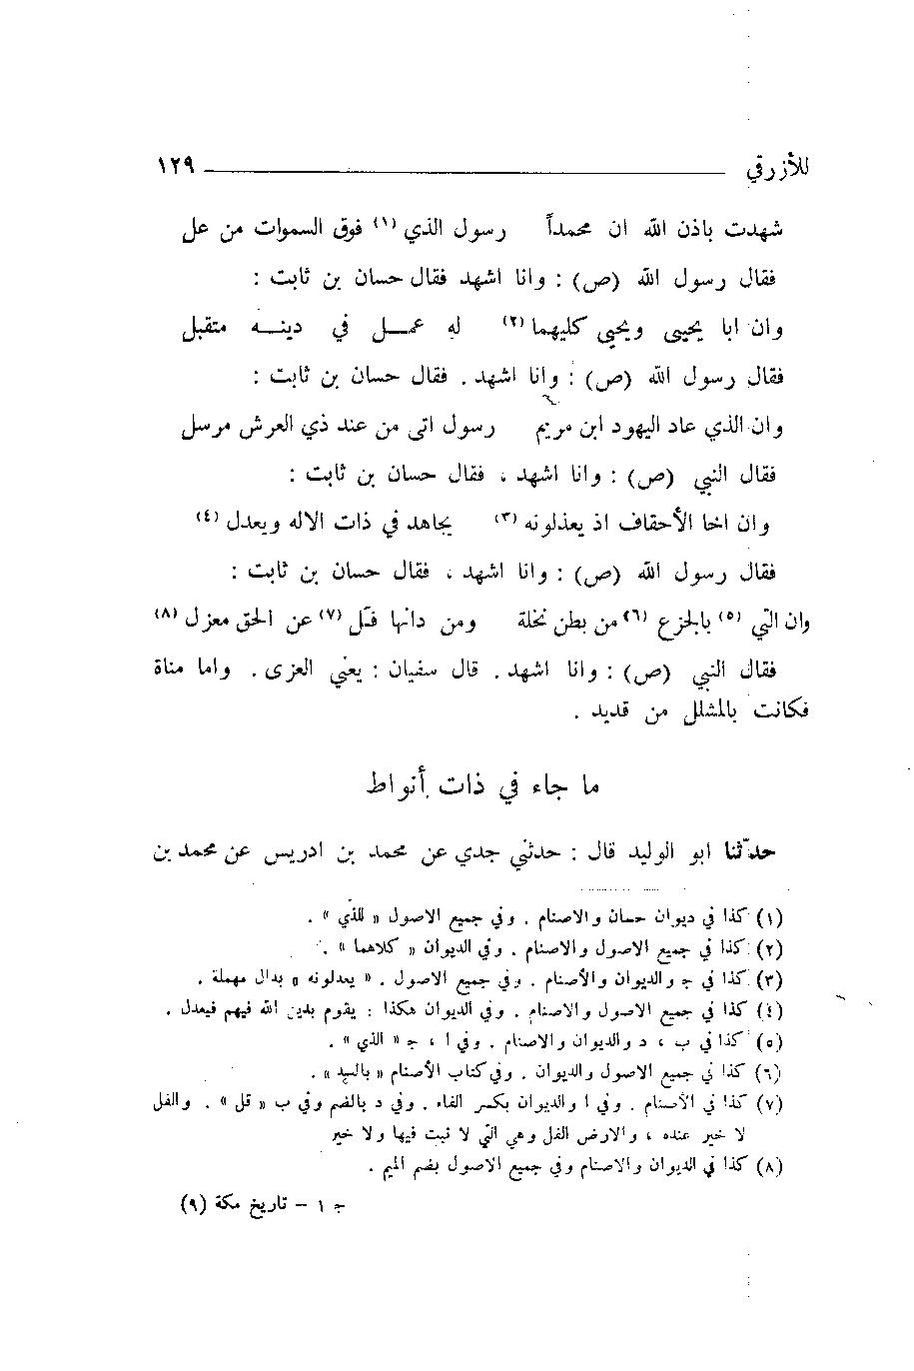 للأزرقي ١٢٩
شهدت باذن الله ان محمداً رسول الذي (١) فوق السموات من عل
فقال رسول الله (ص) : وانا اشهد فقال حسان بن ثابت :
وان ابا يحيى ويحيى كليهما (٢) له عمـــل في دينـــه متقبل
فقال رسول الله (ص) : وانا اشهد . فقال حسان بن ثابت :
وان الذي عاد اليهود ابن مريم رسول اتى من عند ذي العرش مرسل
فقال النبي (ص) : وانا اشهد ، فقال حسان بن ثابت :
وان اخا الأحقاف اذ يعذلونه (٣) يجاهد في ذات الاله ويعدل (٤)
فقال رسول الله (ص) : وانا اشهد ، فقال حسان بن ثابت :
وان التي (٥) بالجزع (٦) من بطن نخلة ومن دانها فَـل (٧) عن الحق معزل (٨)
فقال النبي (ص) : وانا اشهد . قال سفيان : يعني العزى . واما مناة
فكانت بالمشلل من قديد .
ما جاء في ذات أنواط
حدّثنا ابو الوليد قال : حدثني جدي عن محمد بن ادريس عن محمد بن
(١) كذا في ديوان حسان والاصنام . وفي جميع الاصول « للذي » .
(٢) كذا في جميع الاصول والاصنام . وفي الديوان « كلاهما » .
(٣) كذا في ج والديوان والأصنام . وفي جميع الاصول . « يعدلونه » بدال مهملة .
(٤) كذا في جميع الاصول والاصنام . وفي الديوان هكذا : يقوم بدين الله فيهم فيعدل .
(٥) كذا في ب ، د والديوان والاصنام . وفي ا ، ج « الذي » .
(٦) كذا في جميع الاصول والديوان . وفي كتاب الأصنام « بالسد » .
(٧) كذا في الأصنام . وفي ا والديوان بكسر الفاء . وفي د بالضم وفي ب « قل » . والفل
لا خير عنده ، والارض الفل وهي التي لا نبت فيها ولا خير
(٨) كذا في الديوان والاصنام وفي جميع الاصول بضم الميم .
ج ١ – تاريخ مكة (٩)